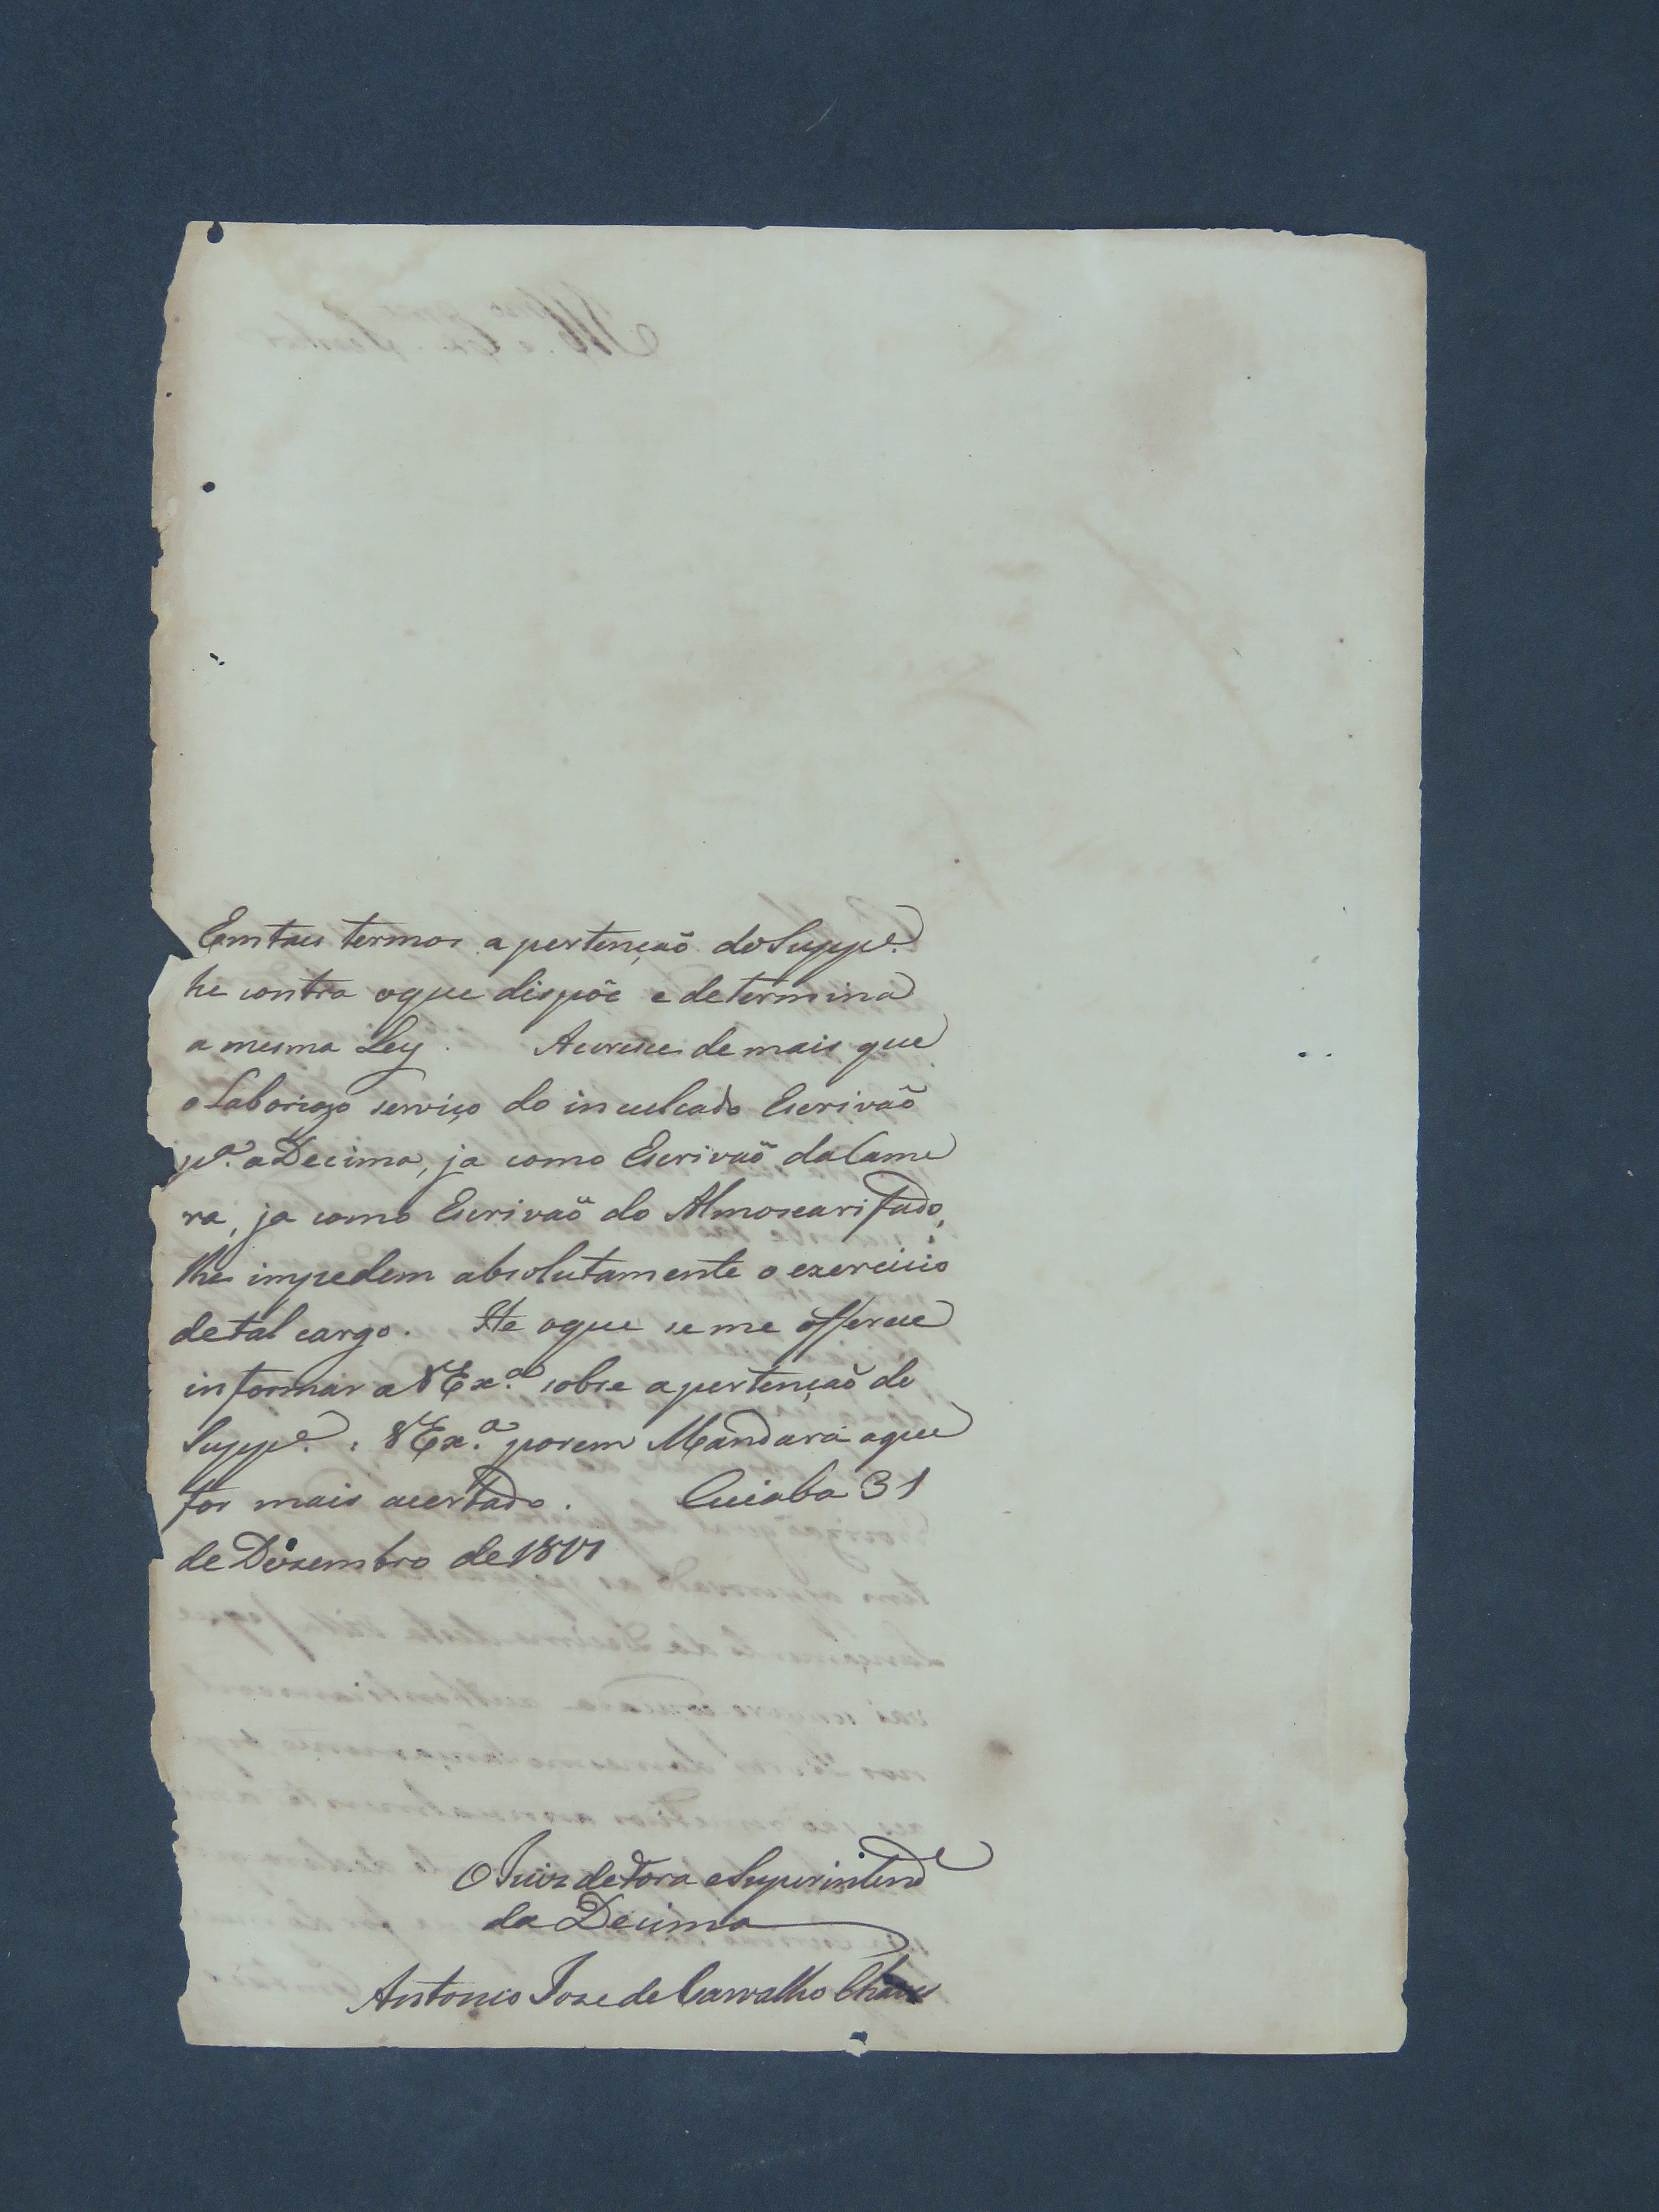 Emtaes termos a pertençaõ do Suppe.
he contra oque dispõe e determina
a mesma Ley. Acresce de mais que
o Laoriozo serviço do inculcado Escrivaõ
pa. a Decima, ja como Escrivaõ da Came
ra, ja como Escrivaõ do Almoxarifado,
lhe impedem absolutamente o exercicio
detal cargo. He oque se me offerece
informar a VExa. sobre apertençaõ do
Suppe.: VExa. porem Mandará oque
for mais acertado. Cuiaba 31
de Dezembro de
O Juiz de Fora e Superintende
da Decima
Antonio Joze de Carvalho Chaves